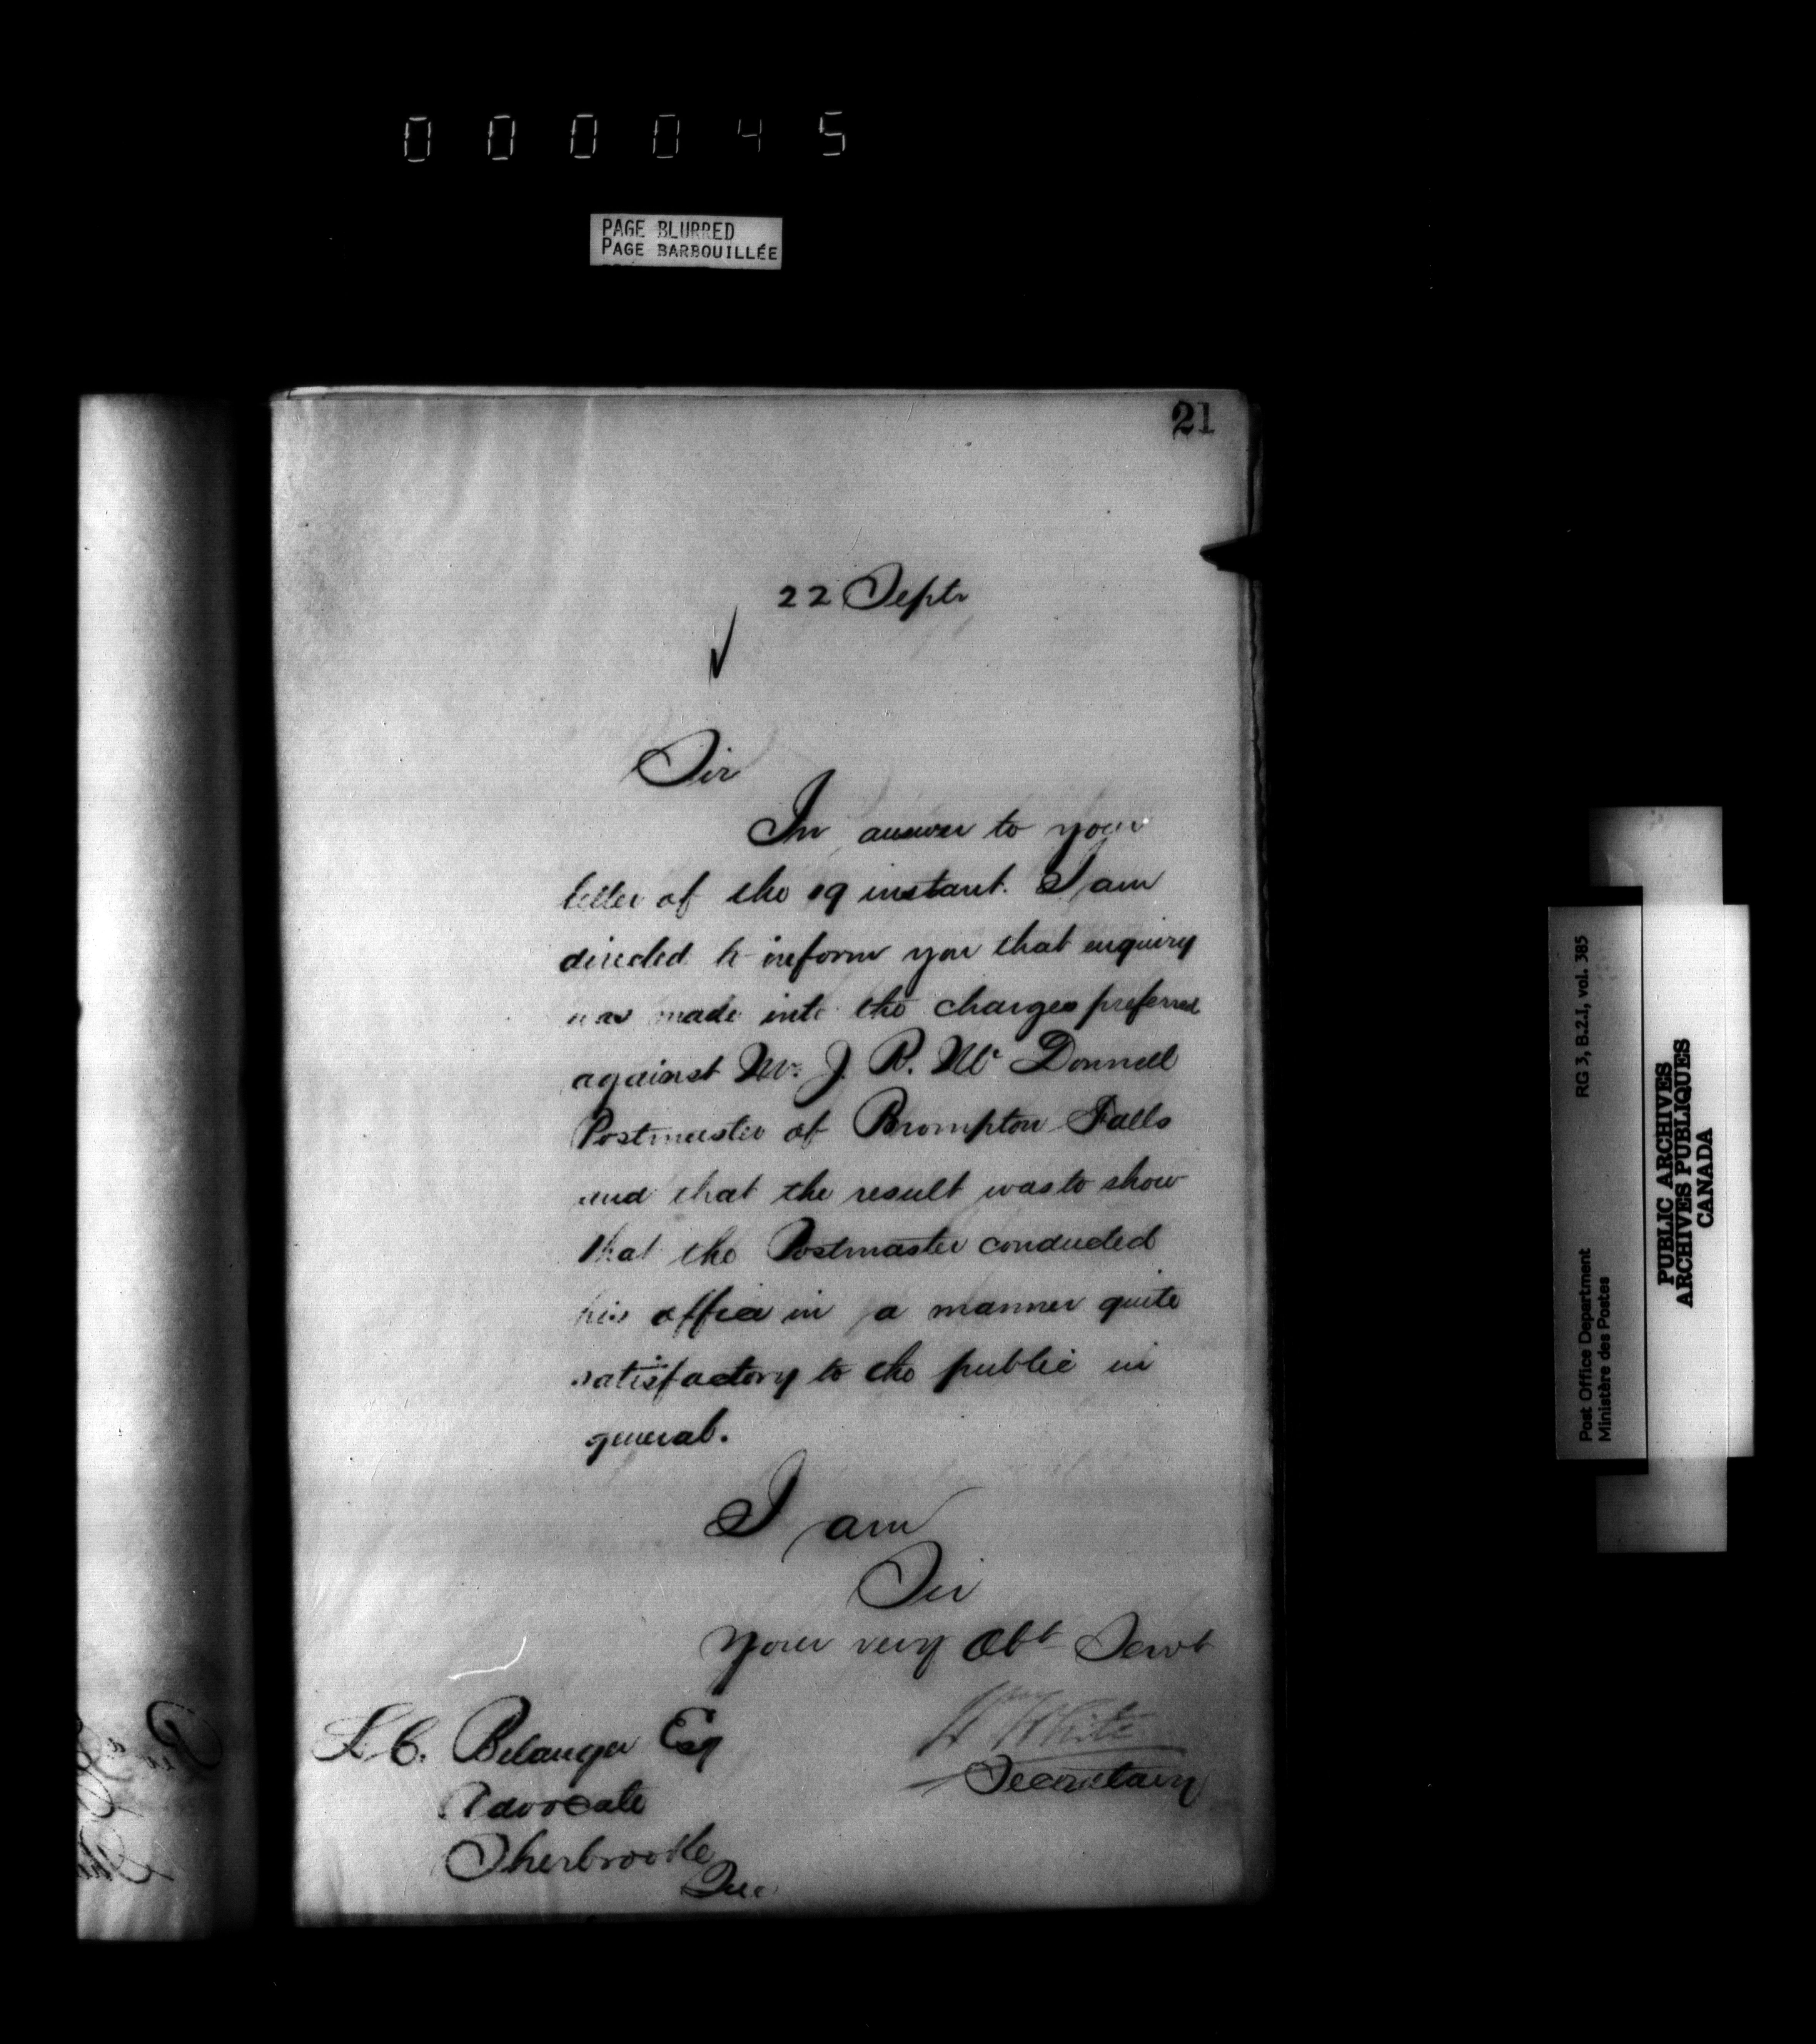 0 0 0 0 4 5
PAGE BLURRED
PAGE BARBOUILLÉE
21
22 Septr
Sir
In answer to your
letter of the 19 instant. I am
directed to inform you that enquiry
was made into the charges preferred
against Mr. J. R. Mc Donnell
Postmaster of Brompton Falls
and that the result was to show
that the Postmaster conducted
his office in a manner quite
satisfactory to the public in
general.
I am
Sir
Your very Obt Servt
Wm White
Secretary
L. C. Belanger Esq
Advocate
Sherbrooke
Que.
Post Office Department
Ministère des Postes
RG 3, B.2.I, vol. 385
PUBLIC ARCHIVES
ARCHIVES PUBLIQUES
CANADA